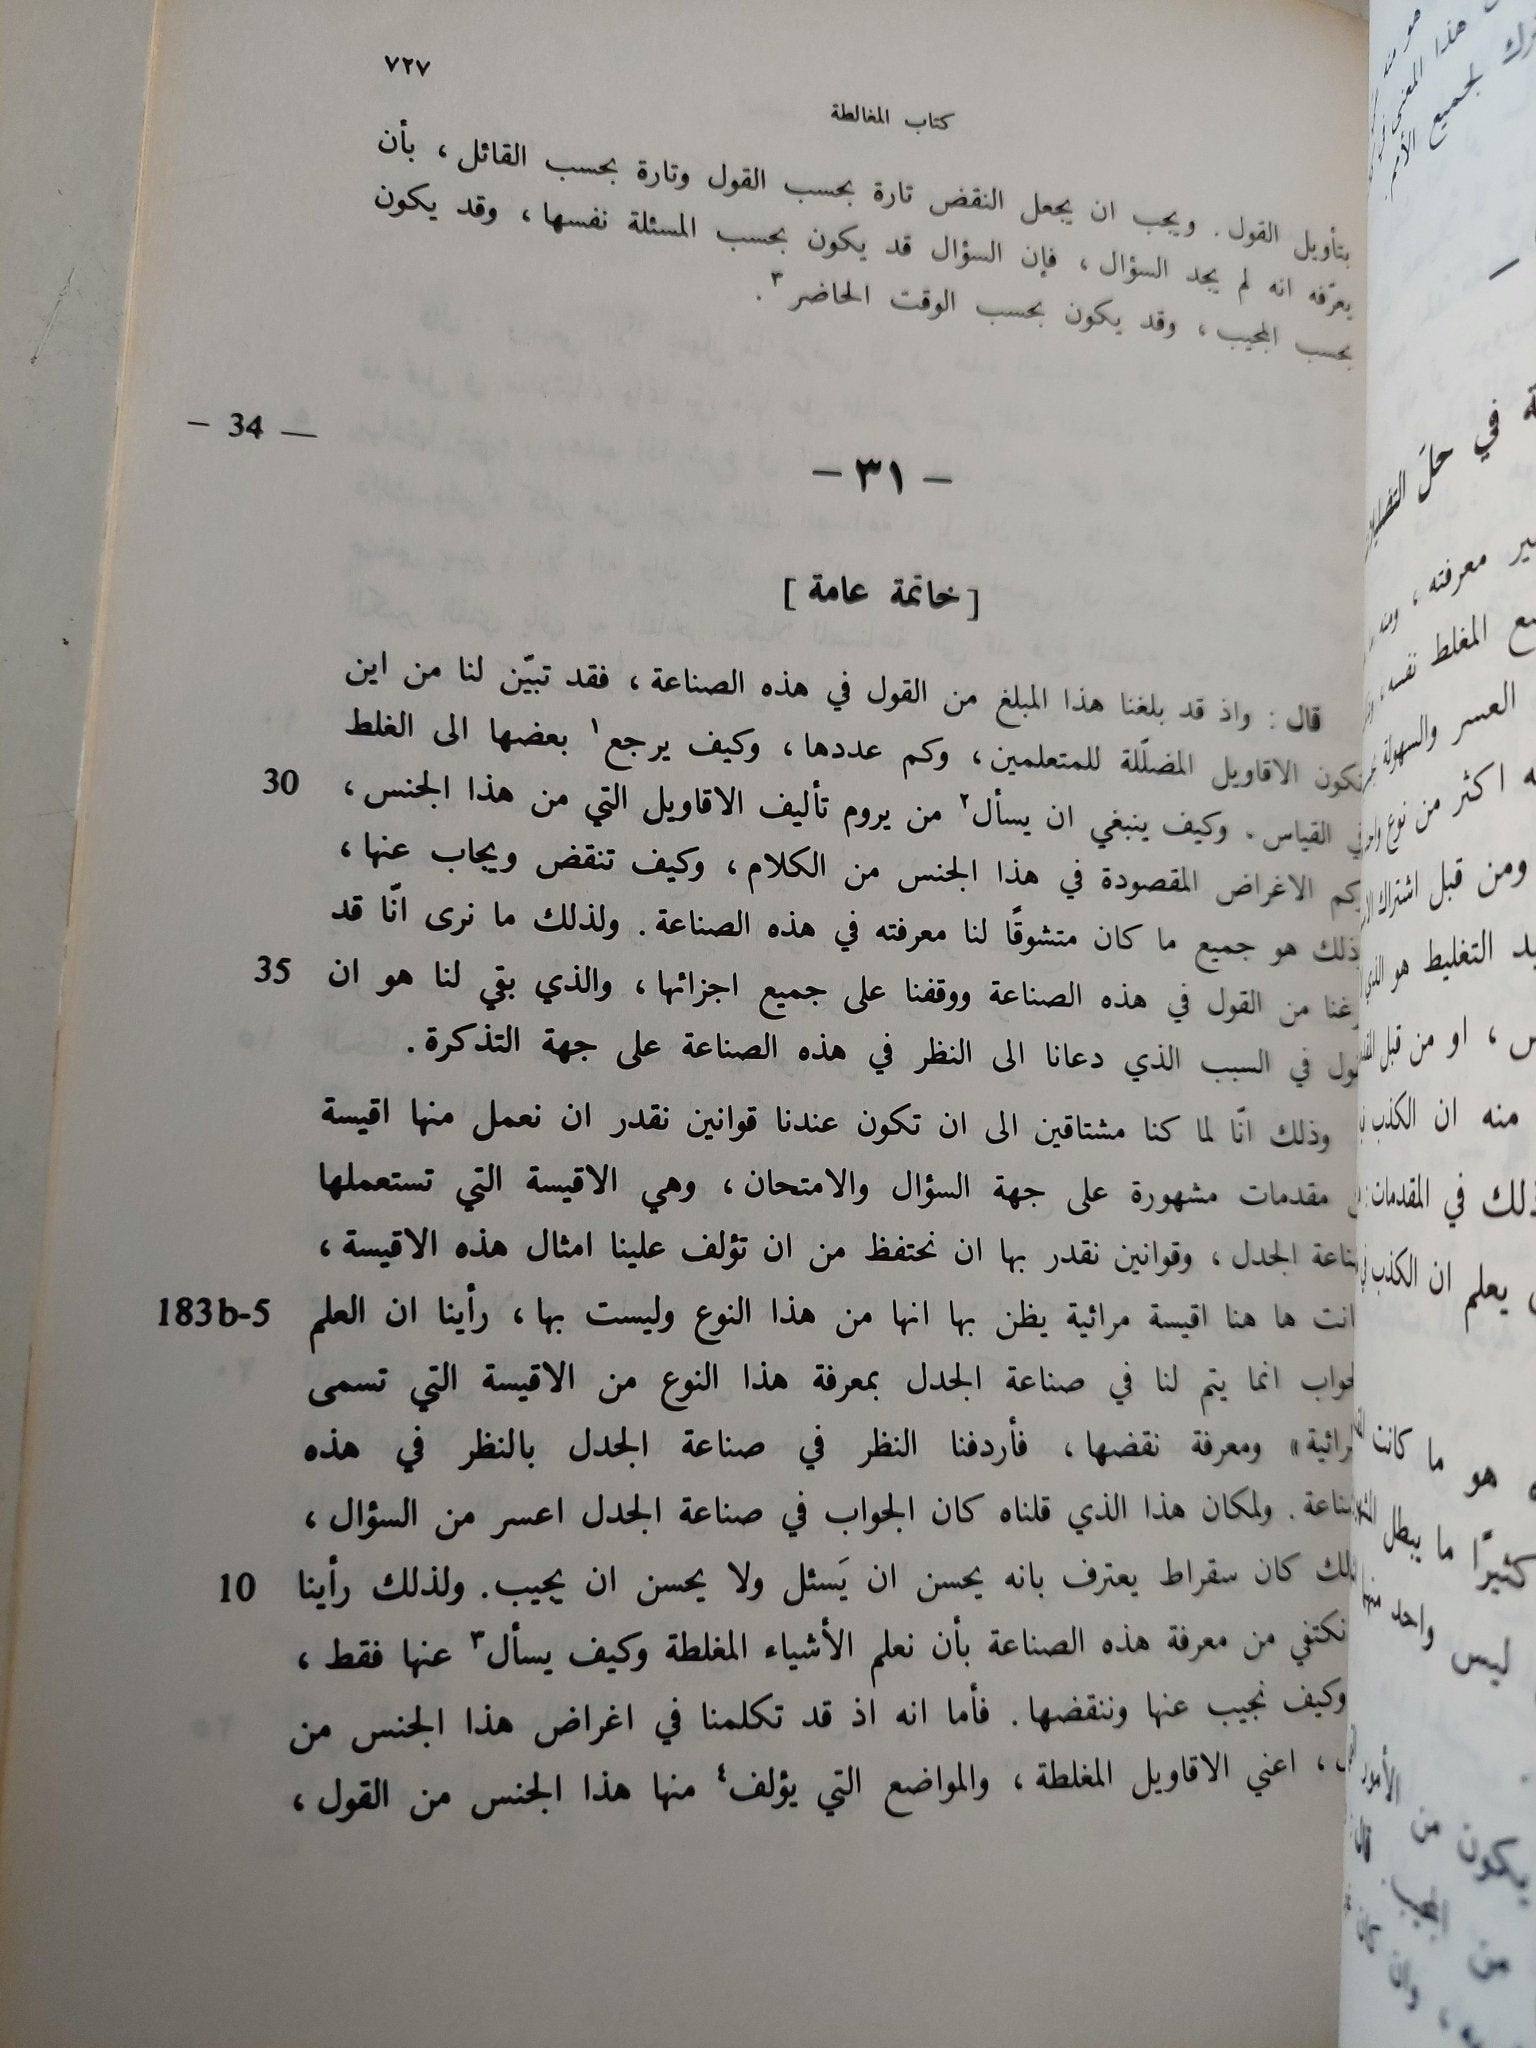 ٧٢٧
كتاب المغالطة
بتأويل القول . ويجب ان يجعل النقض تارة بحسب القول وتارة بحسب القائل ، بأن
يعرّفه انه لم يجد السؤال ، فإن السؤال قد يكون بحسب المسئلة نفسها ، وقد يكون
بحسب المجيب ، وقد يكون بحسب الوقت الحاضر ٣ .
— 34 —
— ٣١ —
[ خاتمة عامة ]
قال : واذ قد بلغنا هذا المبلغ من القول في هذه الصناعة ، فقد تبيّن لنا من اين
تكون الاقاويل المضلّلة للمتعلمين ، وكم عددها ، وكيف يرجع ١ بعضها الى الغلط
30 في القياس . وكيف ينبغي ان يسأل ٢ من يروم تأليف الاقاويل التي من هذا الجنس ،
وكم الاغراض المقصودة في هذا الجنس من الكلام ، وكيف تنقض ويجاب عنها ،
وذلك هو جميع ما كان متشوقًا لنا معرفته في هذه الصناعة . ولذلك ما نرى انّا قد
35 من القول في هذه الصناعة ووقفنا على جميع اجزائها ، والذي بقي لنا هو ان
في السبب الذي دعانا الى النظر في هذه الصناعة على جهة التذكرة .
وذلك انّا لما كنا مشتاقين الى ان تكون عندنا قوانين نقدر ان نعمل منها اقيسة
مقدمات مشهورة على جهة السؤال والامتحان ، وهي الاقيسة التي تستعملها
الجدل ، وقوانين نقدر بها ان نحتفظ من ان تؤلف علينا امثال هذه الاقيسة ،
183b-5 ها هنا اقيسة مرائية يظن بها انها من هذا النوع وليست بها ، رأينا ان العلم
انما يتم لنا في صناعة الجدل بمعرفة هذا النوع من الاقيسة التي تسمى
ومعرفة نقضها ، فأردفنا النظر في صناعة الجدل بالنظر في هذه
. ولمكان هذا الذي قلناه كان الجواب في صناعة الجدل اعسر من السؤال ،
10 كان سقراط يعترف بانه يحسن ان يَسئل ولا يحسن ان يجيب . ولذلك رأينا
نكتفي من معرفة هذه الصناعة بأن نعلم الأشياء المغلطة وكيف يسأل ٣ عنها فقط ،
وكيف نجيب عنها وننقضها . فأما انه اذ قد تكلمنا في اغراض هذا الجنس من
، اعني الاقاويل المغلطة ، والمواضع التي يؤلف ٤ منها هذا الجنس من القول ،
هذا المعنى
لجميع الأمم
في حلّ
معرفته ، ومنه
المغلط نفسه
العسر والسهولة
اكثر من نوع
ومن قبل اشتراك
التغليط هو الذي
، او من قبل
منه ان الكذب
في المقدمات
يعلم ان الكذب
هو ما كانت
كثيرًا ما يبطل
ليس واحد منها
يكون من الأمور